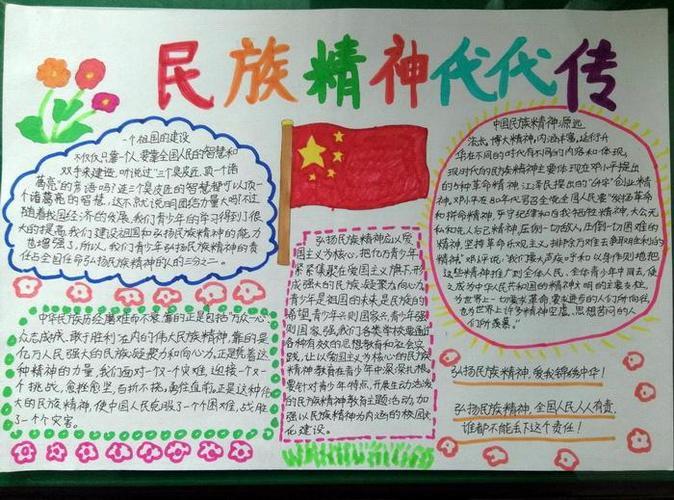 民族精神代代传
一个祖国的建设
不仅仅只靠一个人,要靠全国人民的智慧和
双手来建造,听说过"三个臭皮匠,顶个诸
葛亮"的常语吗?连三个臭皮匠的智慧都可以顶一
个诸葛亮的智慧,这不就说明团结力量大吗?不过
随着我国经济的发展,我们青少年的学习得到了很
大的提高,我们建设祖国和弘扬民族精神的能力
也增强了,所以,我们青少年弘扬民族精神的责
任占全国任命弘扬民族精神的人的三分之二。
中华民族历经磨难而不衰,靠的正是包括万众一心、
众志成城、敢于胜利在内的伟大民族精神,靠的是
亿万人民强大的民族凝聚力和向心力。正是凭着这
种精神的力量,我们面对一次个灾难,迎接一次一
个挑战,愈挫愈坚,百折不挠,勇往直前。正是这种伟
大的民族精神,使中国人民克服了一个个困难,战胜
了一个个灾害。
弘扬民族精神应以爱
国主义为核心,把亿万青少年
紧紧集聚在爱国主义旗下,形
成强大的民族凝聚力和向心力
青少年是祖国的未来,是民族的
希望,青少年兴则国家兴,青少年强
则国家强,我们各类学校要通过
各种有效的思想教育和社会实
践,让以爱国主义为核心的民族
精神教育在青少年中深深扎根。
要针对青少年特点,开展生动活泼
的民族精神教育主题活动,加
强以民族精神为内涵的校园文
化建设。
中国民族精神,源远
流长,博大精深,内涵丰富,延衍升
华在不同的时代有不同的内容和体现。
现时代的民族精神主要体现在邓小平提出
的5种革命精神,江泽民提出的"64字"创业精
神,邓小平在80年代号召全党全国人民要"发扬革命
和拼命精神,严守纪律和自我牺牲精神,大公无
私和先人后己精神,压倒一切敌人,压倒一切困难的
精神,坚持革命乐观主义,排除万难去争取胜利的
精神"邓评说:我们要大声疾呼和以身作则地把
这些精神推广到全体人民,全体青少年中间去,使
之成为中华人民共和国的精神文明的主要支柱,
为世界上一切要求革命,要求进步的人们所向往,
也为世界上许多精神空虚、思想苦闷的人
们所羡慕。"
弘扬民族精神,爱我锦绣中华!
弘扬民族精神,全国人民人人有责,
谁都不能丢下这个责任!